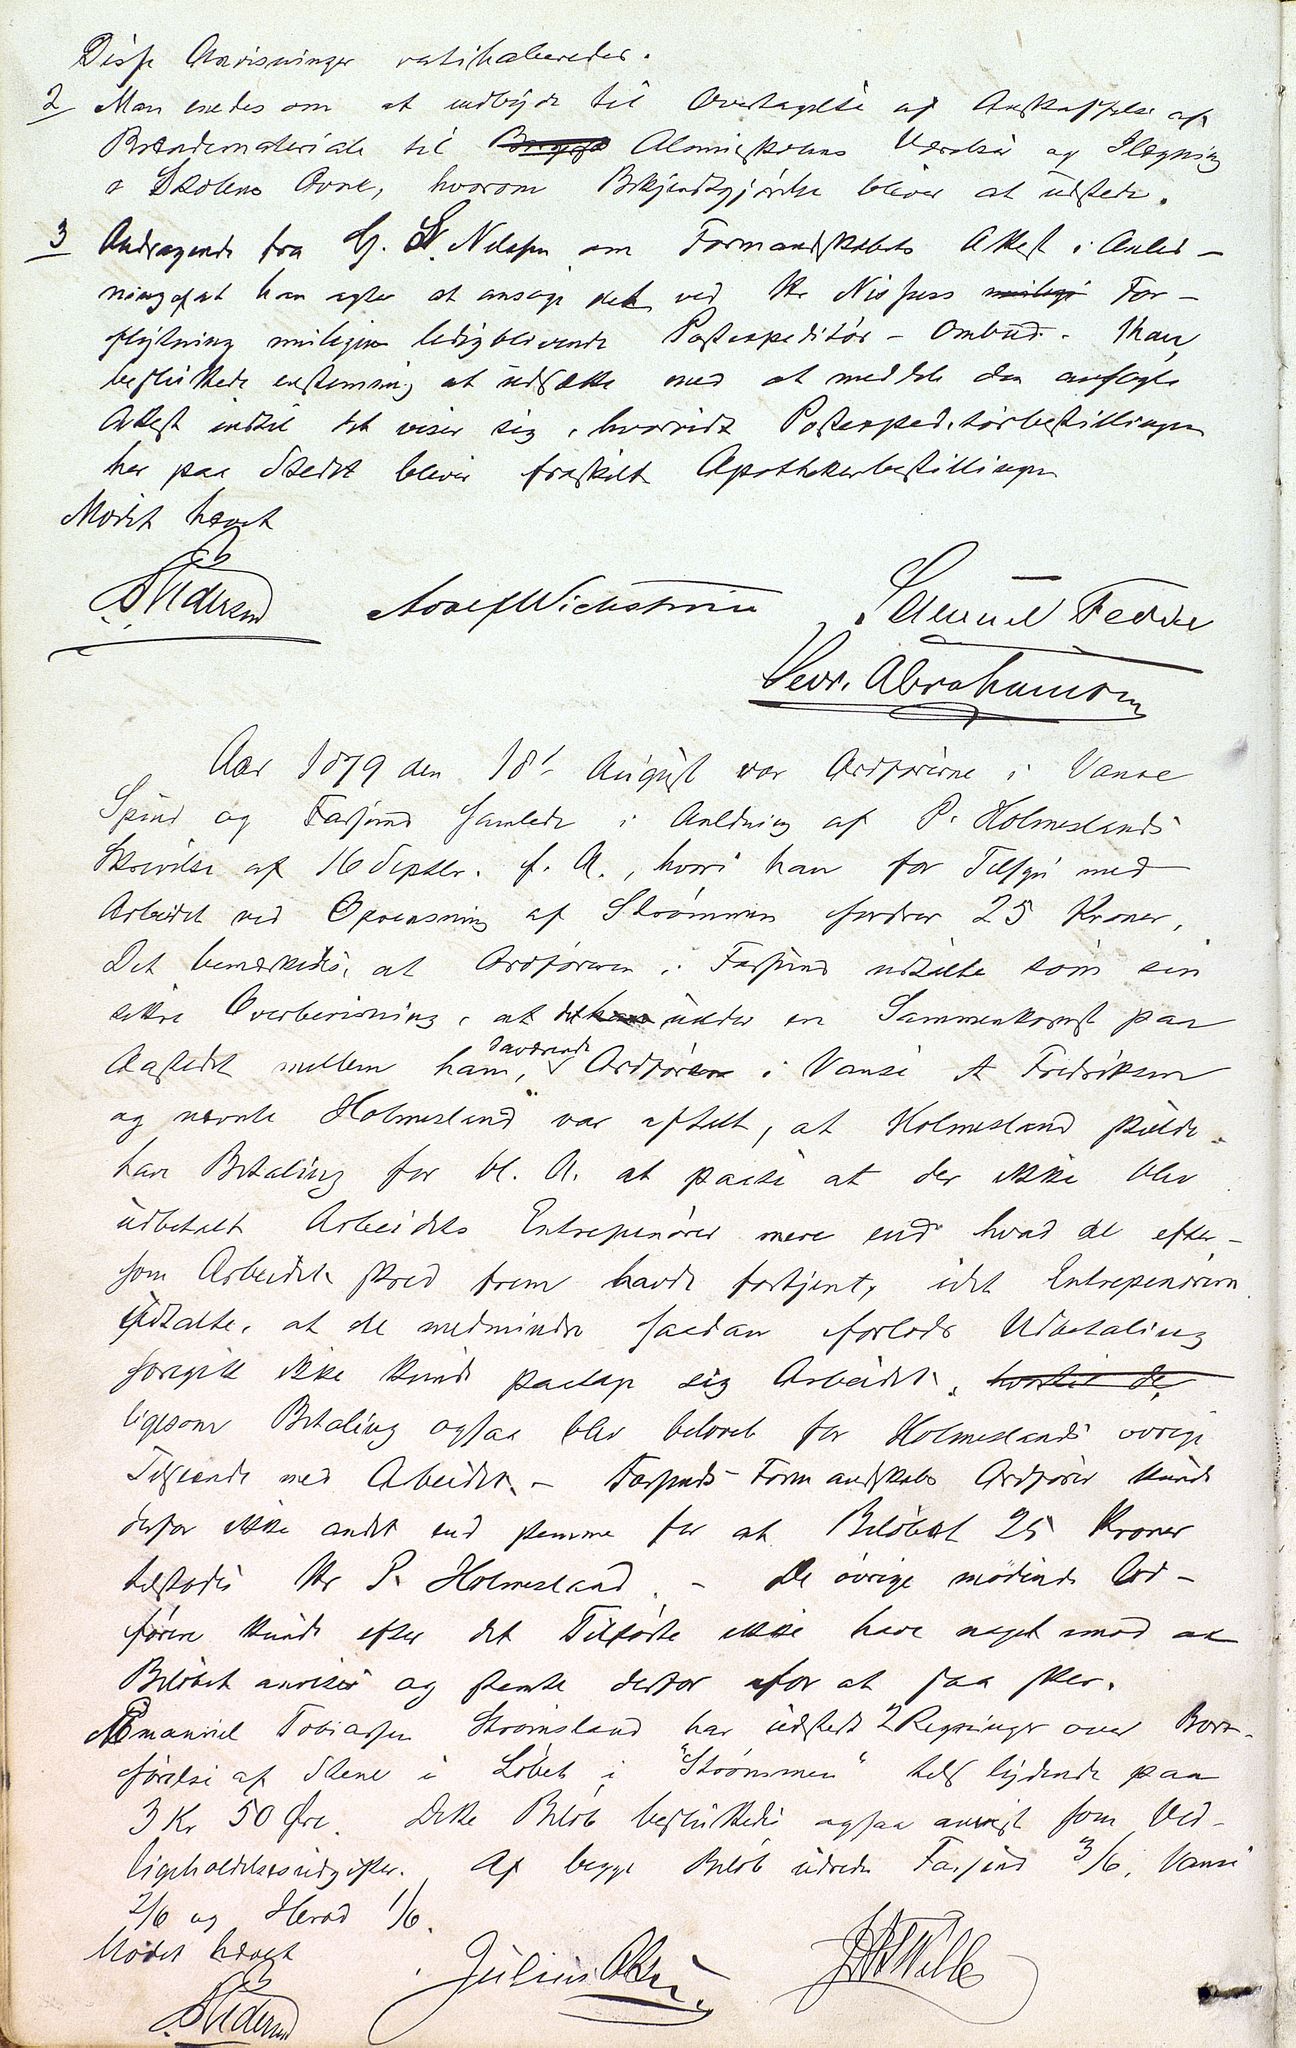 Disse Anvisninger ratihaberedes.
2 Man enedes om at indbyde til Overtagelse af Anskaffelse af
Brændemateriale til Almueskolens Værelser og Ilægning
i Skolens Ovne, hvorom Bekjendtgjørelse bliver at udstede.
3 Andragende fra G. S. Nilssen om Formandskabets Attest i Anled-
ning af at han agter at ansøge det ved Hr Nissens For-
flytning muligens ledigblivende Postexpeditør-Ombud. Man
besluttede enstemmig at udsætte med at meddele den ansøgte
Attest indtil det viser sig, hvorvidt Postexpeditørbestillingen
her paa Stedet bliver fraskilt Apothekerbestillingen
Mødet hævet
Adolf Wickstrøm Samuel Fedde
Abrahamsen
Aar 1879 den 18de August var Ordførerne i Vanse
Spind og Farsund samlede i Anledning af P. Holmeslands
Skrivelse af 16 Septbr. f. A., hvori han for Tilsyn med
Arbeidet ved Oprensning af Strømmen fordrer 25 Kroner.
Det bemærkedes, at Ordføreren i Farsund udtalte som sin
sikre Overbevisning, at det under en Sammenkomst paa
Aastedet mellem ham, daværende Ordfører i Vanse A Fredriksen
og nævnte Holmesland var aftalt, at Holmesland skulde
have Betaling for bl. A. at paase at der ikke blev
udbetalt Arbeidets Entrepenører mere end hvad de efter-
som Arbeidet skred frem havde fortjent, idet Entrepenørerne
udtalte, at de medmindre saadan forlods Udbetaling
foregik ikke kunde paatage sig Arbeidet, hvortil de
ligesom Betaling ogsaa blev belovet for Holmeslands øvrige
Tilsyn med Arbeidet. - Farsunds Formandskabs Ordfører kunde
derfor ikke andet end stemme for at Beløbet 25 Kroner
tilstodes Hr P. Holmesland. - De øvrige mødende Ord-
førere kunde efter det Tilførte ikke have noget imod at
Beløbet anvises og stemte derfor for at saa sker.
Emanuel Tobiassen Strømsland har udstedt 2 Regninger over Bort-
førelse af Stene i Løbet i "Strømmen" tils lydende paa
3 Kr 50 Øre. Dette Beløb besluttedes ogsaa anvist som Ved-
ligeholdelsesudgifter. Af begge Beløb udreder Farsund 3/6, Vanse
2/6 og Herad 1/6.
Mødet hævet
Julius Olsen